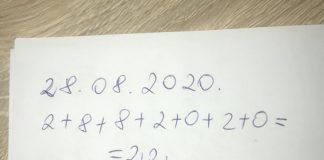 28.08.2020.
2+8+8+2+0+2+0=
=22.